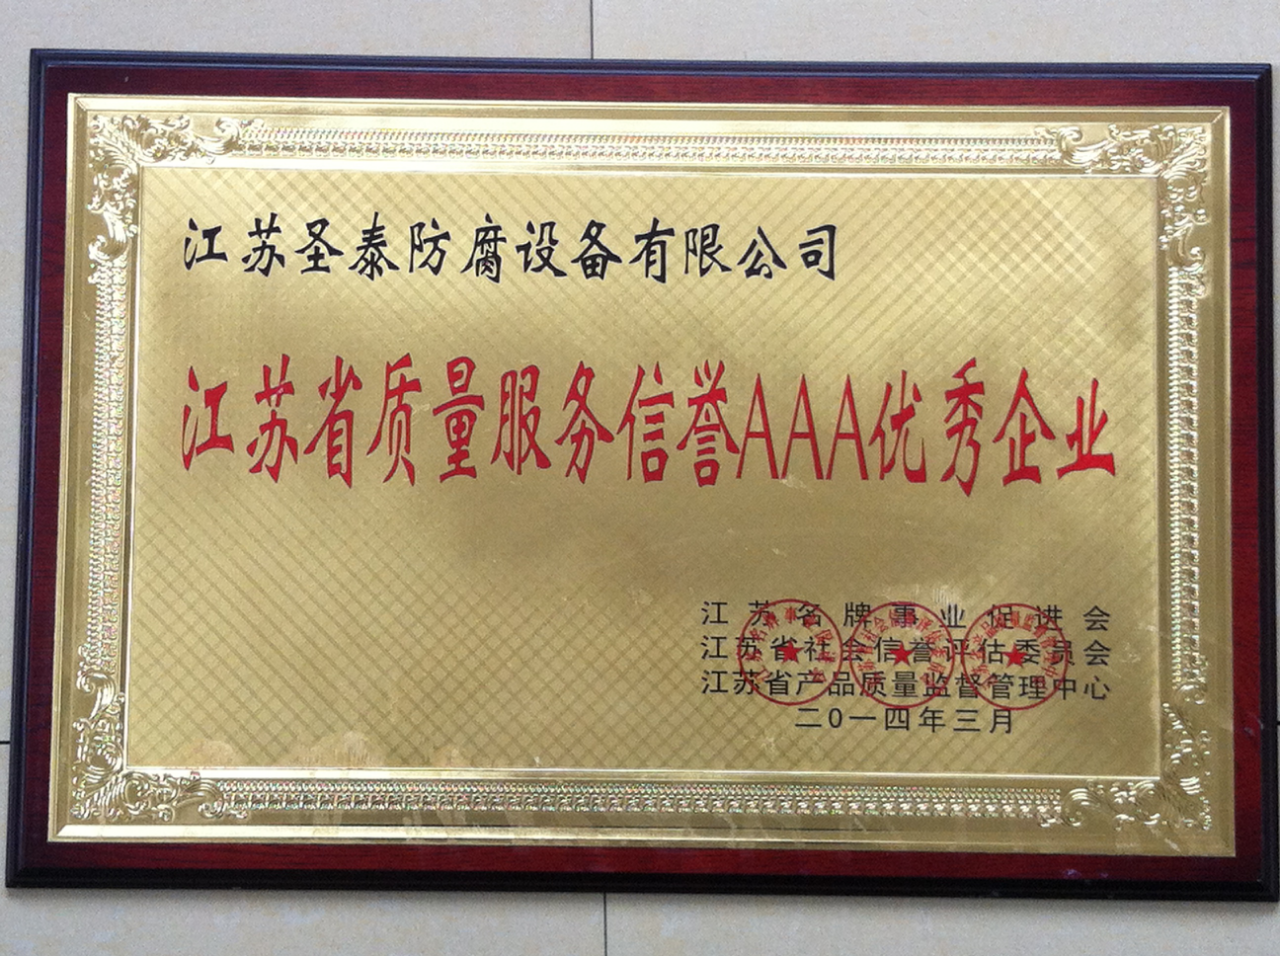 江苏圣泰防腐设备有限公司
江苏省质量服务信誉AAA优秀企业
江苏名牌事业促进会
江苏省社会信誉评估委员会
江苏省产品质量监督管理中心
二0一四年三月